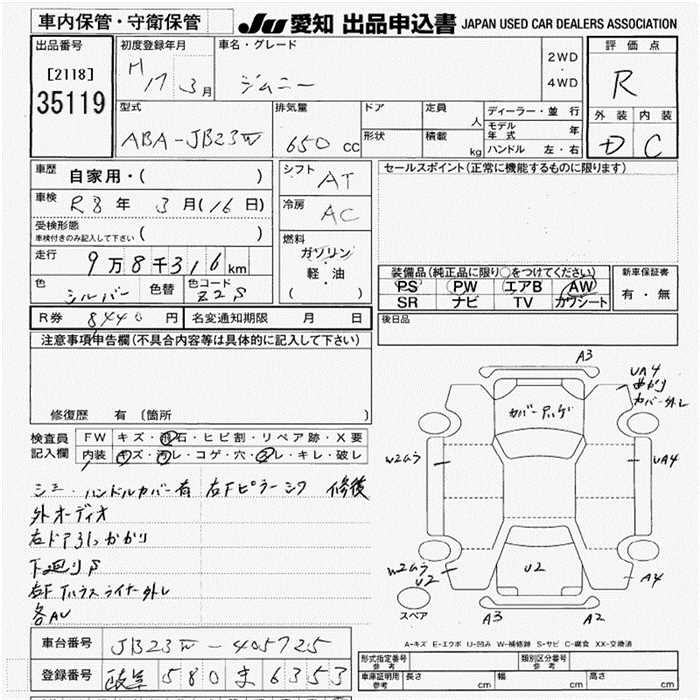 車内保管・守衛保管
JU 愛知 出品申込書 JAPAN USED CAR DEALERS ASSOCIATION
出品番号
[2118]
35119
初度登録年月
H17 3月
車名・グレード
ジムニー
2WD
・
4WD
評価点
R
外装 内装
D C
型式
ABA-JB23W
排気量
650 cc
ドア
形状
定員 人
積載 kg
ディーラー・並行
モデル年式 年
ハンドル 左・右
車歴 自家用・( )
車検 R8年 3月(16日)
受検形態
車検付きのみ記入して下さい ( )
走行 9万8千316km
色 シルバー 色替 色コード Z2S
シフト AT
冷房 AC
燃料
ガソリン
・
軽・油
( )
セールスポイント(正常に機能するものに限ります)
装備品(純正品に限り○をつけてください)
PS PW エアB AW
SR ナビ TV カワシート
新車保証書
有・無
後日品
R券 8440円 名変通知期限 月 日
注意事項申告欄(不具合内容等は具体的に記入して下さい)
修復歴 有 (箇所 )
検査員記入欄
FW キズ・飛石・ヒビ割・リペア跡・X要
内装 キズ・汚レ・コゲ・穴・スレ・キレ・破レ
シミ・ハンドルカバー有 右下ピラーシワ 修復
外オーディオ
右ドア31っかかり
下廻りS
右F インナー外レ
各AU
カバー
A3
UA4
曲がり
カバー外レ
W2ムラ
UA4
W2ムラ
U2
U2
A4
A3
A2
スペア
A-キズ E-エクボ U-凹み W-補修跡 S-サビ C-腐食 XX-交換済
車台番号 JB23W-405725
登録番号 岐阜 580 ま 6353
形式指定番号
参考
類別区分番号
参考
車庫証明用
参考
長さ cm 幅 cm 高さ cm